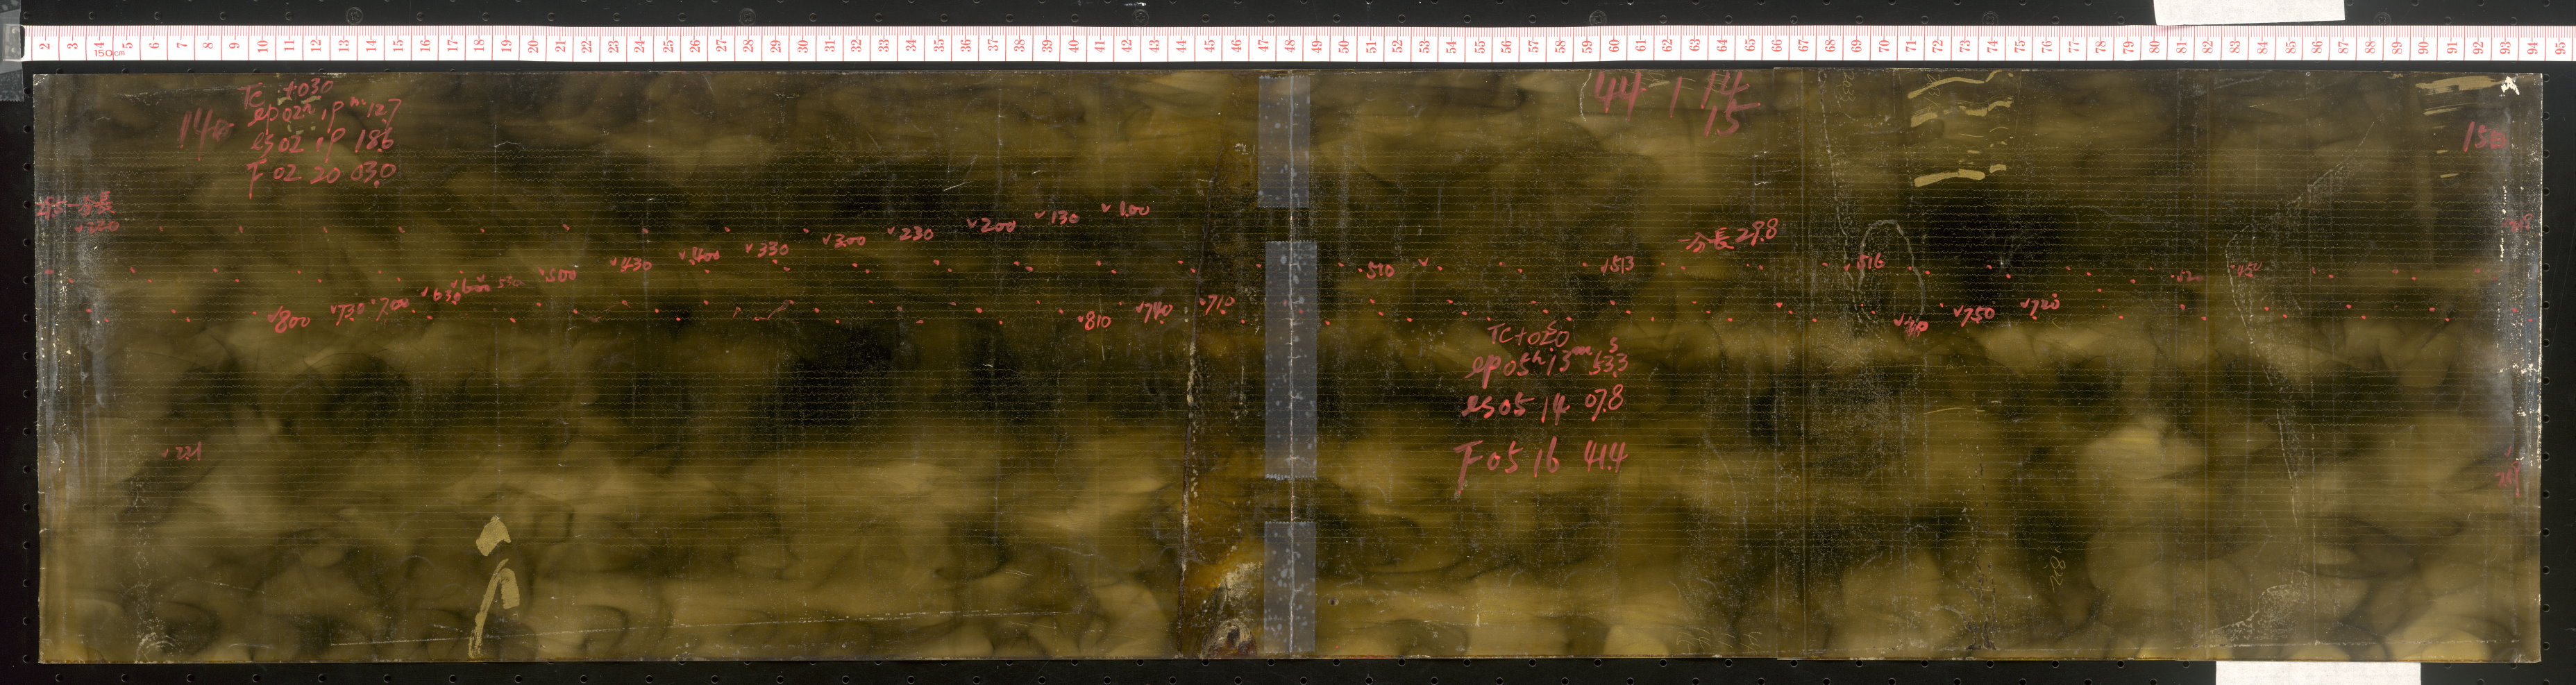 2 3 14 5 6 7 8 9 10 11 12 13 14 15 16 17 18 19 20 21 22 23 24 25 26 27 28 29 30 31 32 33 34 35 36 37 38 39 40 41 42 43 44 45 46 47 48 49 50 51 52 53 54 55 56 57 58 59 60 61 62 63 64 65 66 67 68 69 70 71 72 73 74 75 76 77 78 79 80 81 82 83 84 85 86 87 88 89 90 91 92 93 94 95
150cm
Tc +030
ep 02h 19m 12.7
es 02 19 18.6
F 02 20 03.0
44 1 14
15
150
一分長 29.8
220
430 400 330 300 230 200 130 1.00
800 730 700 630 600 530 500
510 513 516 520
810 740 710
750 720
Tc+020
ep 05h 13m 53.3s
es 05 14 07.8
F 05 16 41.4
221